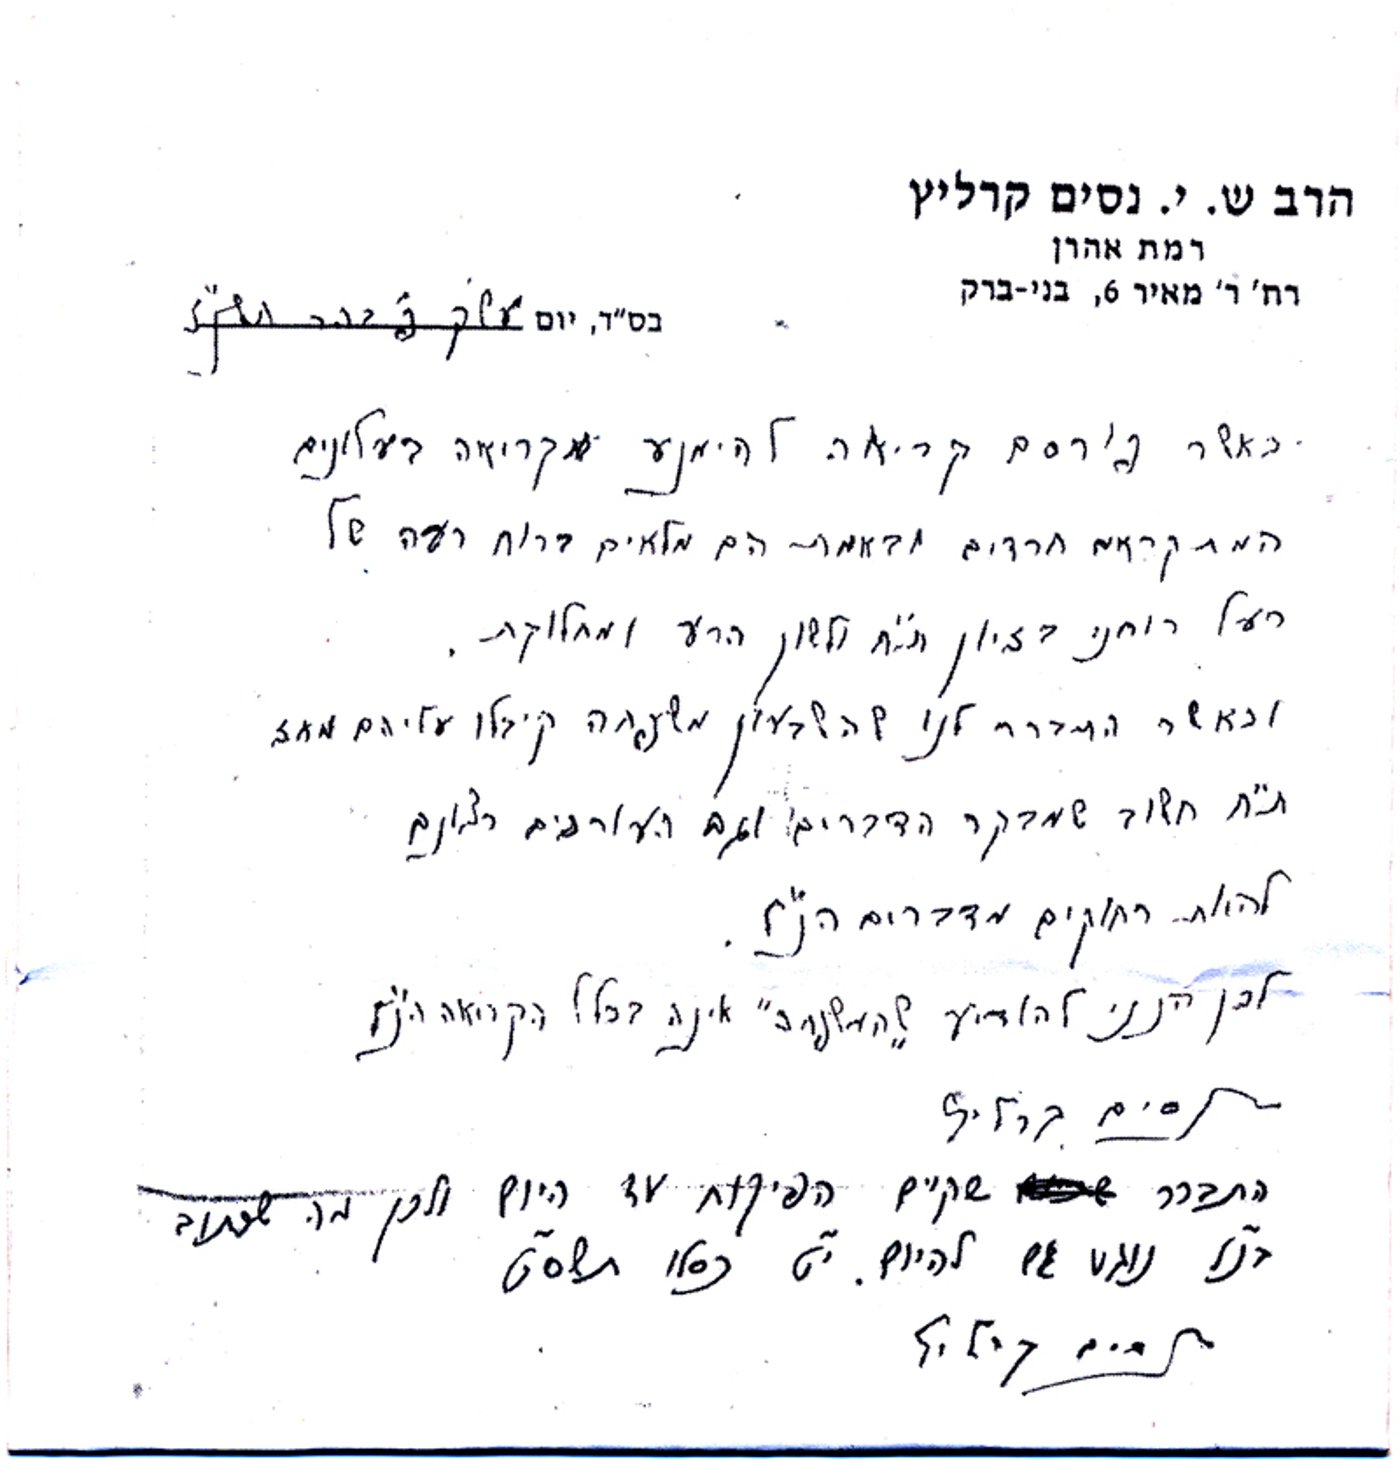 הרב ש. י. נסים קרליץ
רמת אהרן
רח' ר' מאיר 6, בני-ברק
בס"ד, יום עש"ק פ' בהר
כאשר פורסם קריאה להימנע מקריאה בעלונים
המתקראים חרדים ובאמת הם מלאים ברוח רעה של
רעל רוחני בזיון ת"ח ולשון הרע ומחלוקת.
וכאשר התברר לנו שהשבעון משפחה קיבלו עליהם מאז
ת"ח חשוב שמבקר הדברים וגם העורכים רצונם
להיות רחוקים מדברים הנ"ל.
לכן הנני להודיע ש"המשפחה" אינה בכלל הקריאה הנ"ל
נסים קרליץ
התברר שקיים הפיקוח עד היום ולכן מה שכתוב
בנ"ל נוגע גם להיום. י"ט כסלו תשס"ט
נסים קרליץ